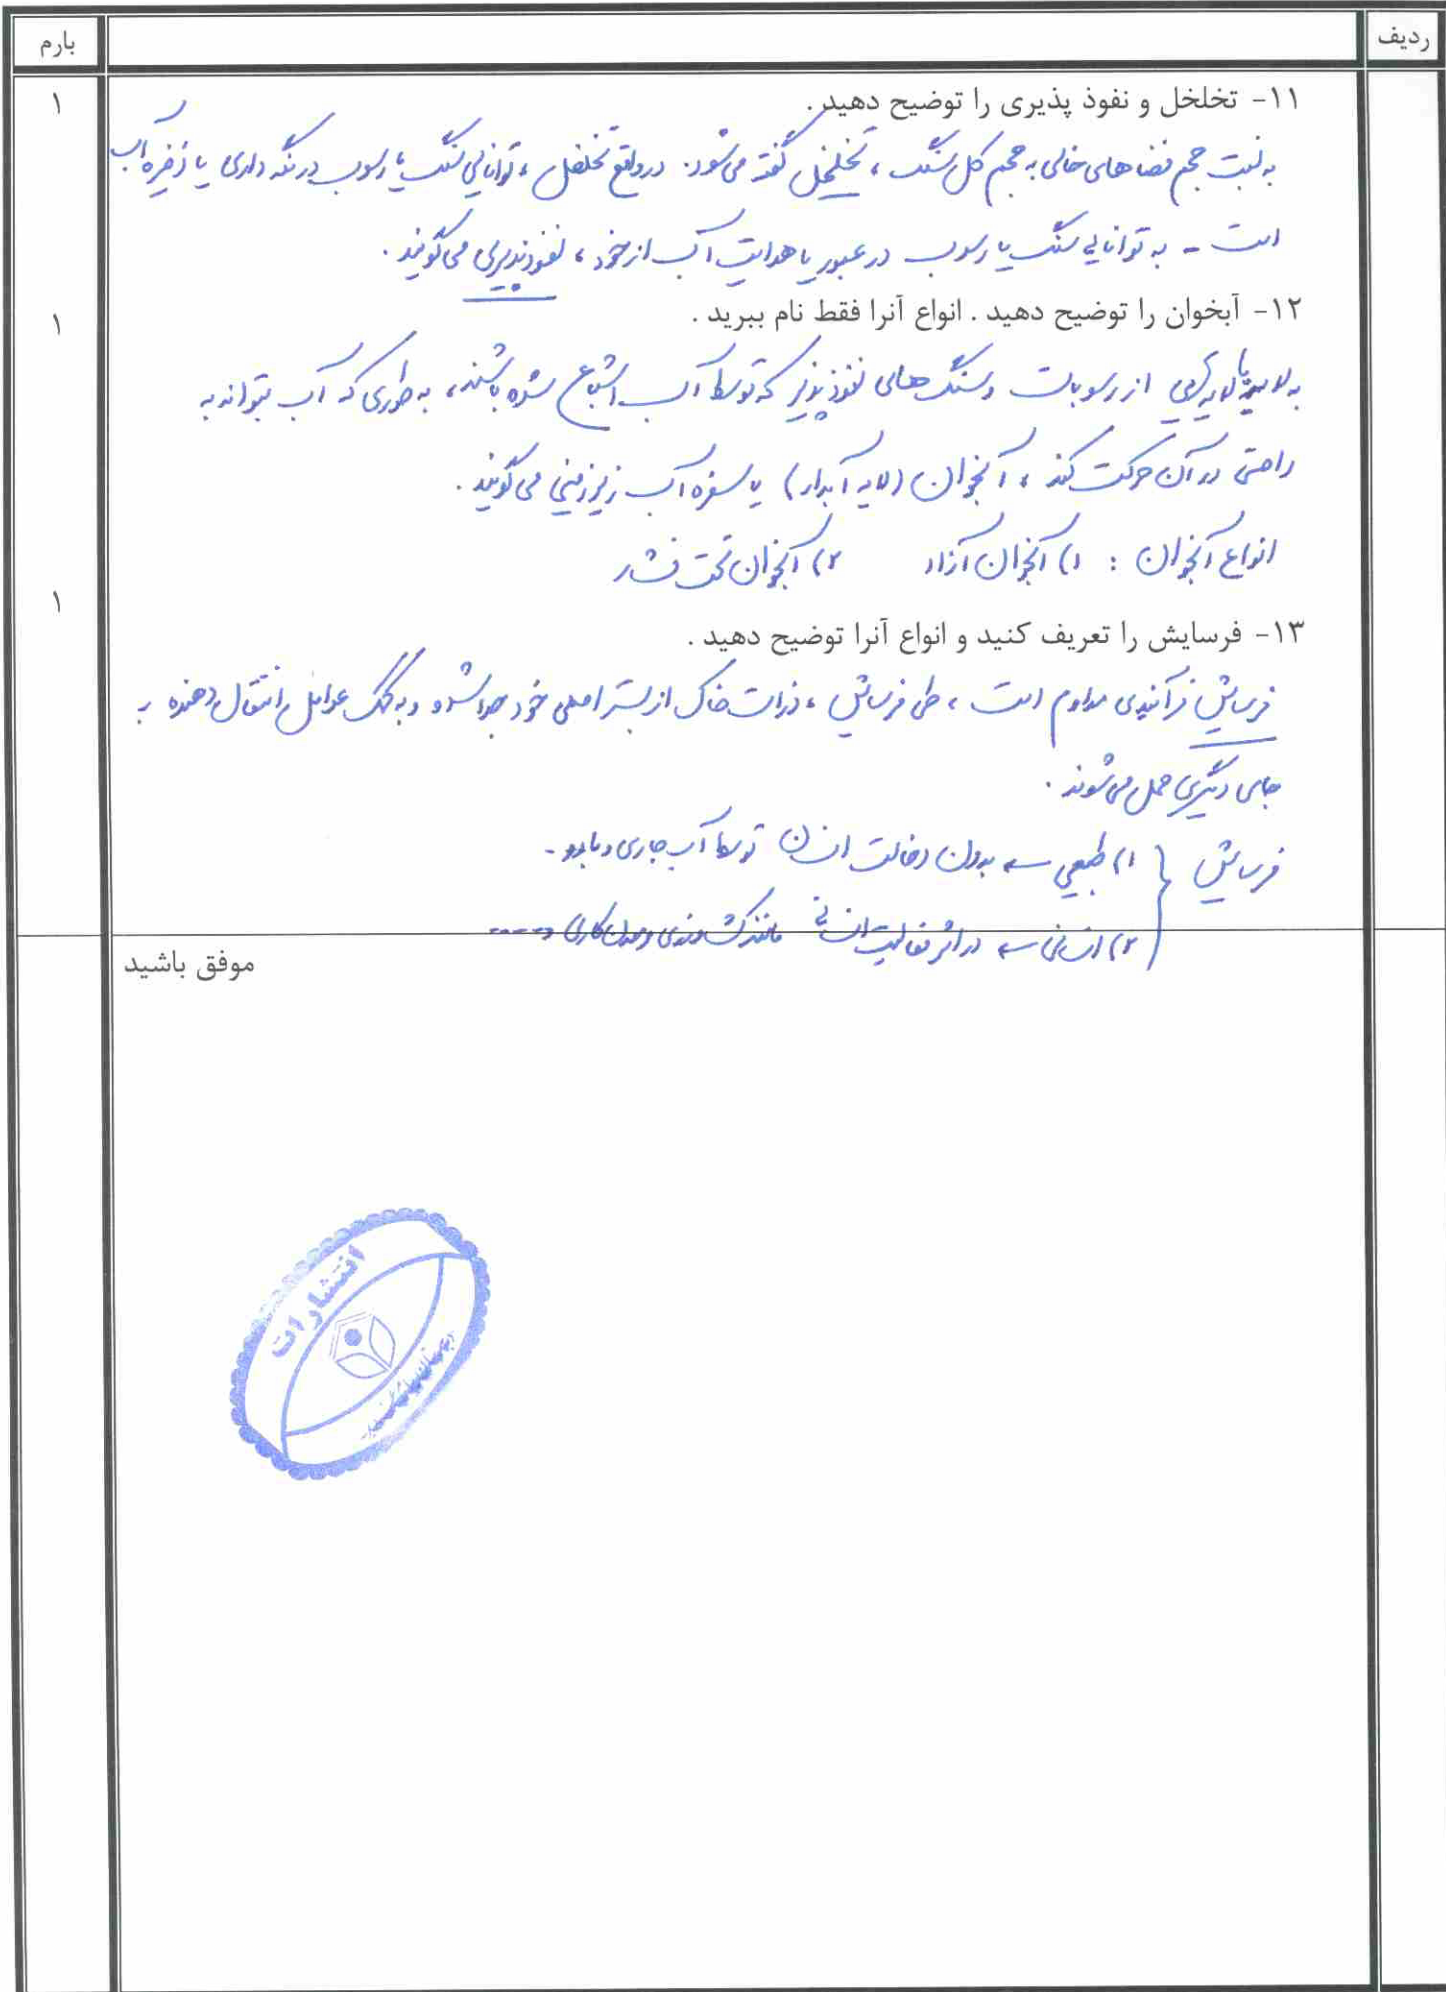 ردیف
بارم
۱۱- تخلخل و نفوذ پذیری را توضیح دهید.
۱
به نسبت حجم فضاهای خالی به حجم کل سنگ، تخلخل گفته می‌شود. در واقع تخلخل، توانایی سنگ یا رسوب در نگه داری یا ذخیره آب
است - به توانایی سنگ یا رسوب در عبور یا هدایت آب از خود، نفوذپذیری می‌گویند.
۱۲- آبخوان را توضیح دهید . انواع آنرا فقط نام ببرید .
۱
به لایه یا لایه‌هایی از رسوبات و سنگ‌های نفوذپذیر که توسط آب اشباع شده باشند، به طوری که آب بتواند به
راحتی در آن حرکت کند، آبخوان (لایه آبدار) یا سفره آب زیرزمینی می‌گویند.
انواع آبخوان : ۱) آبخوان آزاد ۲) آبخوان تحت فشار
۱
۱۳- فرسایش را تعریف کنید و انواع آنرا توضیح دهید .
فرسایش فرآیندی مداوم است، طی فرسایش، ذرات خاک از بستر اصلی خود جدا شده و به کمک عوامل انتقال دهنده به
جای دیگری حمل می‌شوند.
فرسایش { ۱) طبیعی ← بدون دخالت انسان توسط آب جاری و باد و -
۲) انسانی ← در اثر فعالیت انسانی مانند کشاورزی و معدن کاری و ----
موفق باشید
انتشارات